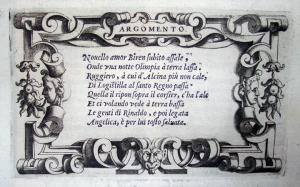 ARGOMENTO.
Nouello amor Biren subito assale,
Onde una notte Olimpia à terra lassa.
Ruggiero, à cui d'Alcina più non cale,
Di Logistilla al santo Regno passa
Quella il ripon sopra il corsier, c'ha l'ale
Et ei volando vede à terra bassa
Le genti di Rinaldo, e poi legata
Angelica, è per lui tosto saluata.